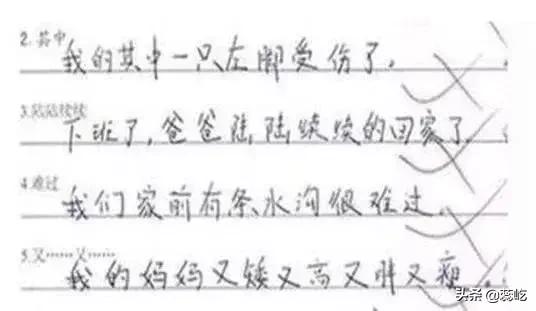 2.其中
我的其中一只左脚受伤了。
3.陆陆续续
下班了,爸爸陆陆续续的回家了
4.难过
我们家前有条水沟很难过。
5.又……又……
我的妈妈又矮又高又胖又瘦。
头条@蕊屹